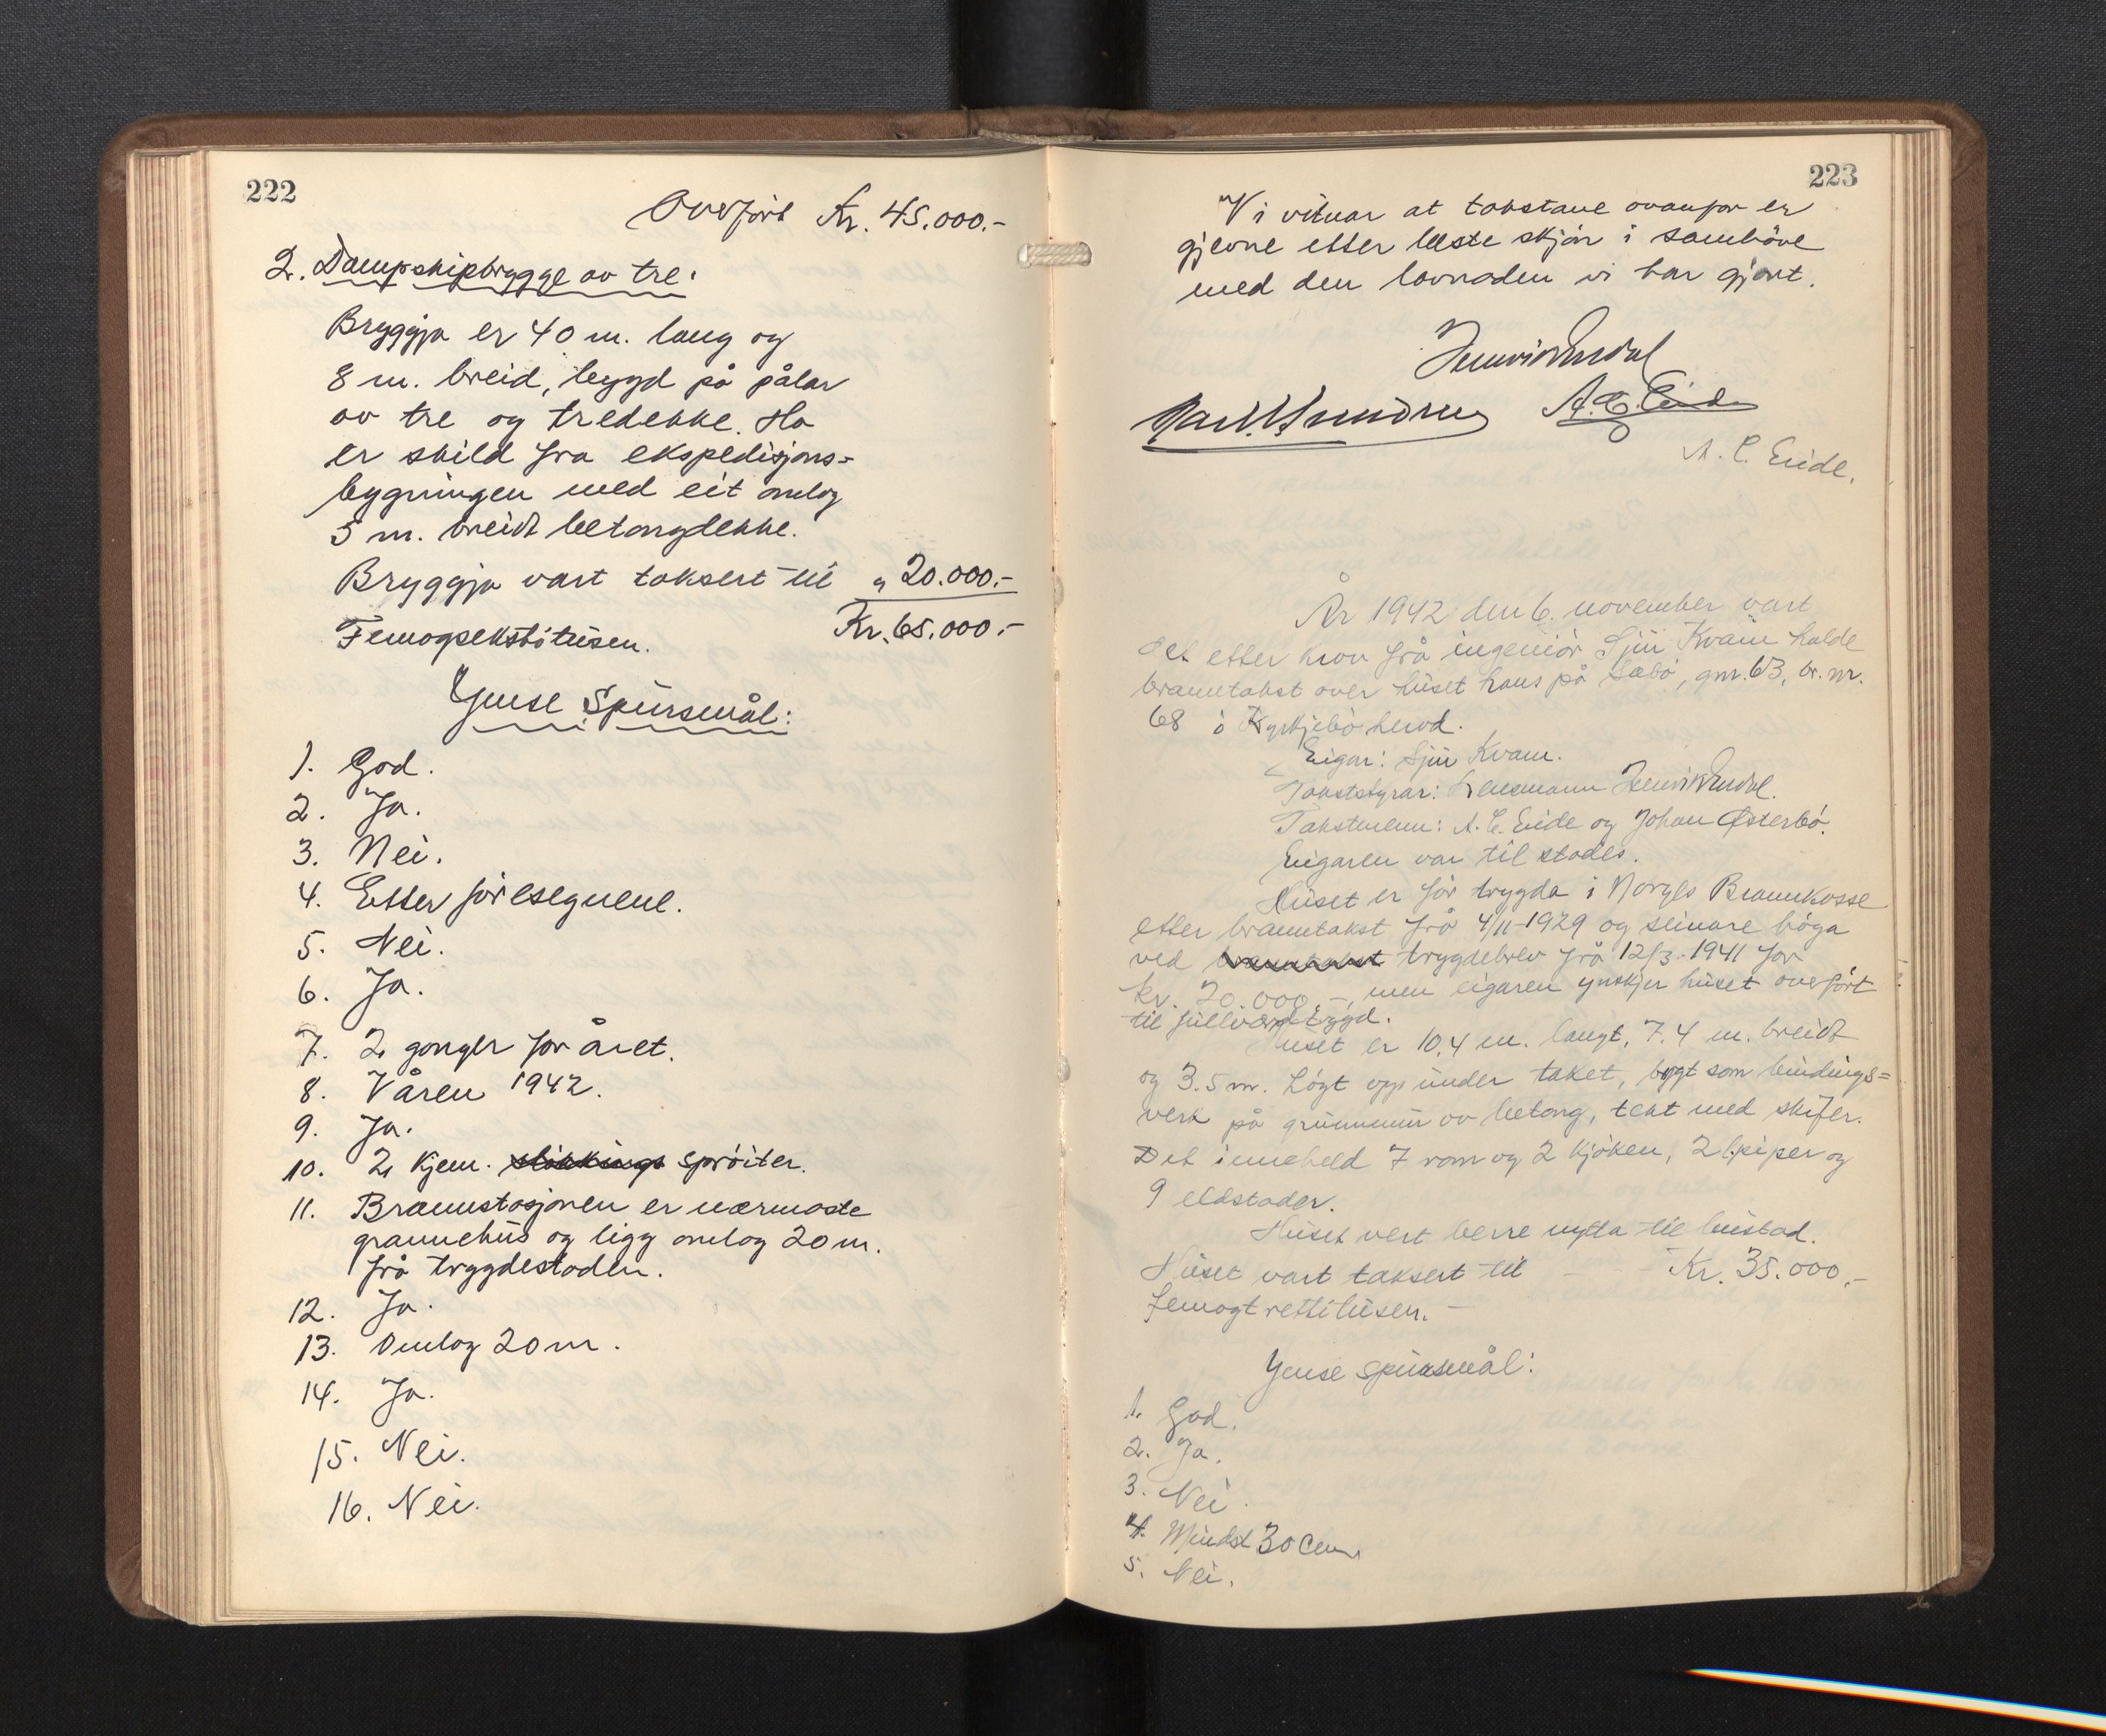 222
Overført Kr. 45.000.-
2. Dampskipbrygge av tre:
Bryggja er 40 m. lang og
8 m. breid, bygd på pålar
av tre og tredekke. Ho
er skild fra ekspedisjons=
bygningen med eit omlag
5 m. breidt betongdekke.
Bryggja vart taksert til " 20.000.-
Femogsekstitusen. Kr. 65.000.-
Ymse Spursmål:
1. God.
2. Ja.
3. Nei.
4. Etter føresegnene.
5. Nei.
6. Ja.
7. 2 gonger for året.
8. Våren 1942.
9. Ja.
10. 2 kjem. sløkkings sprøiter.
11. Brannstasjonen er nærmaste
grannehus og ligg omlag 20 m.
frå trygdestaden.
12. Ja.
13. Omlag 20 m.
14. Ja.
15. Nei.
16. Nei.
223
Vi vitnar at takstane ovanfor er
gjevne etter beste skjøn i samhøve
med den lovnaden vi har gjort.
A. C. Eide
A. C. Eide.
År 1942 den 6. november vart
det etter krav frå ingeniør Sjur Kvam halde
branntakst over huset hans på Sæbø, gnr. 63, br. nr.
68 i Kyrkjebø herad.
Eigar: Sjur Kvam.
Takststyrar: Lensmann
Takstmenn: A. C. Eide og Johan Østerbø.
Eigaren var til stades.
Huset er før trygda i Norges Brannkasse
etter branntakst frå 4/11-1929 og seinare høga
ved branntakst trygdebrev frå 12/3-1941 for
kr. 20.000.-, men eigaren ynskjer huset overført
til fullverdtrygd.
Huset er 10.4 m. langt, 7.4 m. breidt
og 3.5 m. høgt opp under taket, bygt som bindings=
verk på grunnmur av betong, tekt med skifer.
Det inneheld 7 rom og 2 kjøken, 2 piper og
9 eldstader.
Huset vert berre nytta til bustad.
Huset vart taksert til - - - Kr. 35.000.-
femogtrettitusen.-
Ymse spursmål:
1. God.
2. Ja.
3. Nei.
4. Mindst 30 cm.
5. Nei.